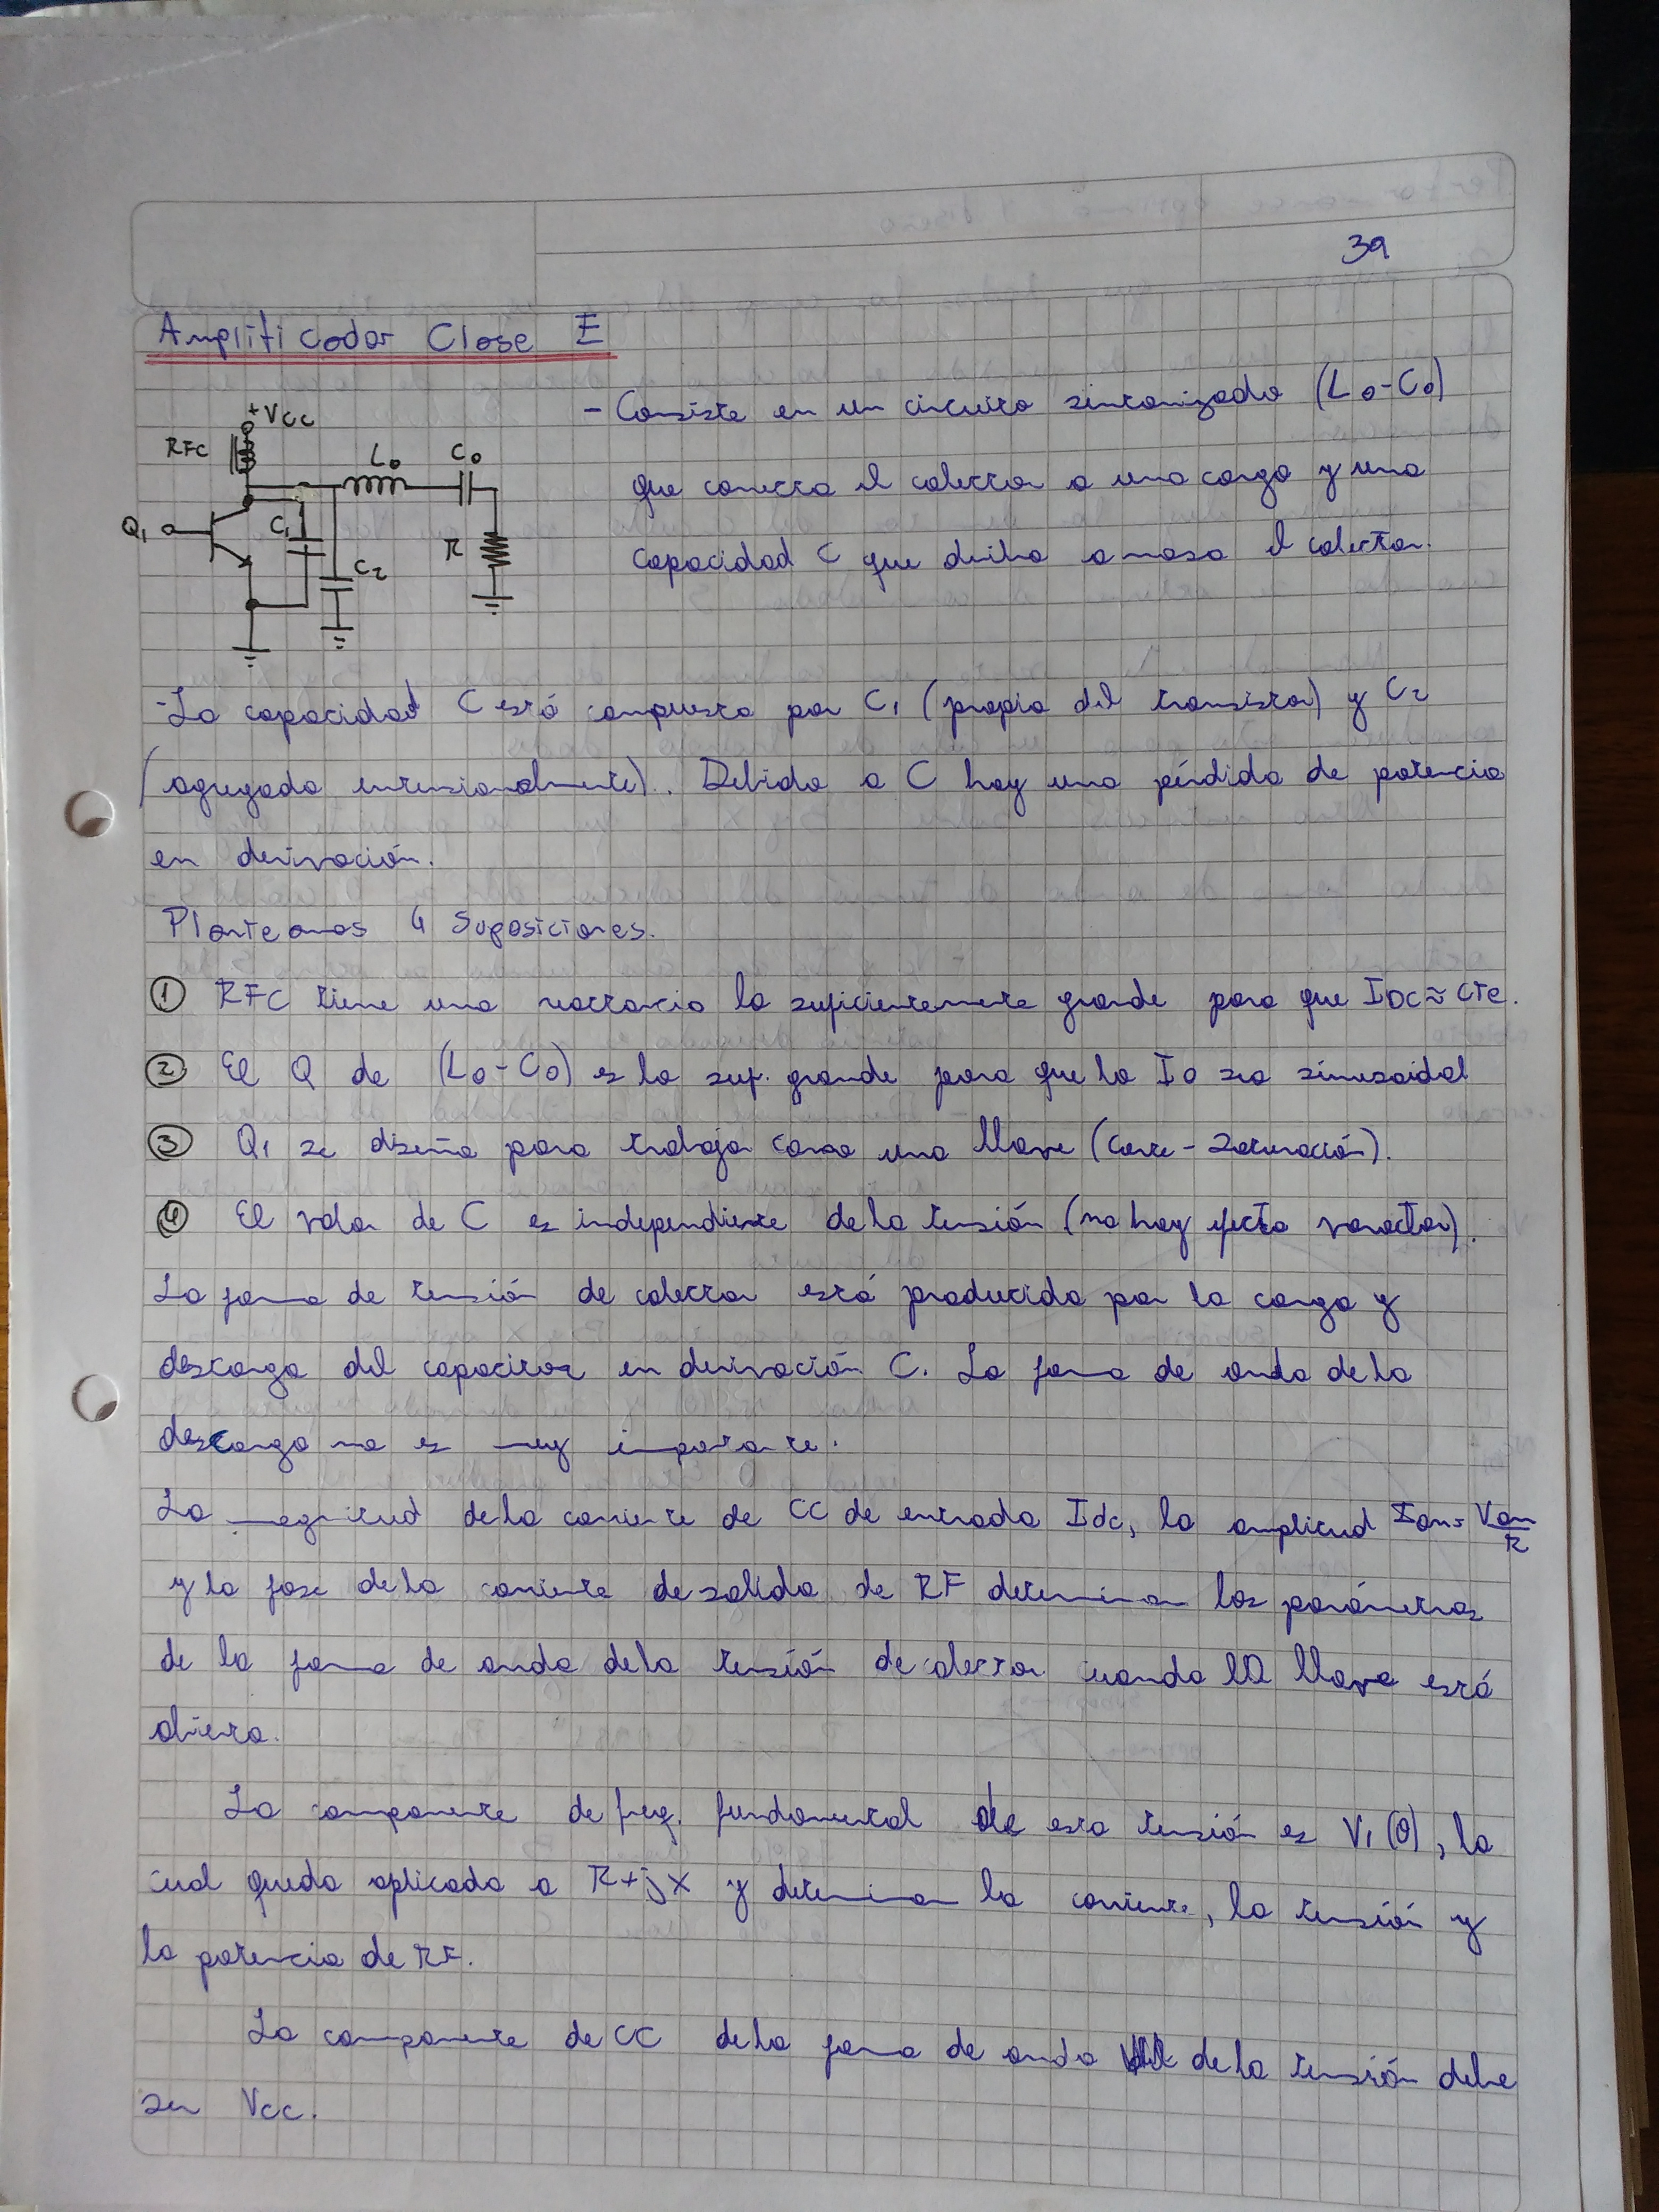 39
Amplificador Clase E
+VCC
RFC
L0
C0
Q1
C1
C2
R
- Consiste en un circuito sintonizado (L0-C0)
que conecta el colector a una carga y una
capacidad C que deriba a masa el colector.
- La capacidad C está compuesta por C1 (propia del transistor) y C2
(agregada intensionalmente). Debido a C hay una pérdida de potencia
en derivación.
Planteamos 4 Suposiciones.
① RFC tiene una reactancia lo suficientemente grande para que IDC≈cte.
② El Q de (L0-C0) es lo suf. grande para que la I0 sea sinusoidal
③ Q1 se diseña para trabajar como una llave (corte-saturación).
④ El valor de C es independiente de la tensión (no hay efecto varactor).
La forma de tensión de colector está producida por la carga y
descarga del capacitor en derivación C. La forma de onda de la
descarga no es muy importante.
La magnitud de la corriente de CC de entrada Idc, la amplitud Iom= Vom/R
y la fase de la corriente de salida de RF determinan los parámetros
de la forma de onda de la tensión de colector cuando la llave está
abierta.
La componente de freq. fundamental de esta tensión es V1(θ), la
cual queda aplicada a R+jX y determinan la corriente, la tensión y
la potencia de RF.
La componente de CC de la forma de onda de la tensión debe
ser Vcc.